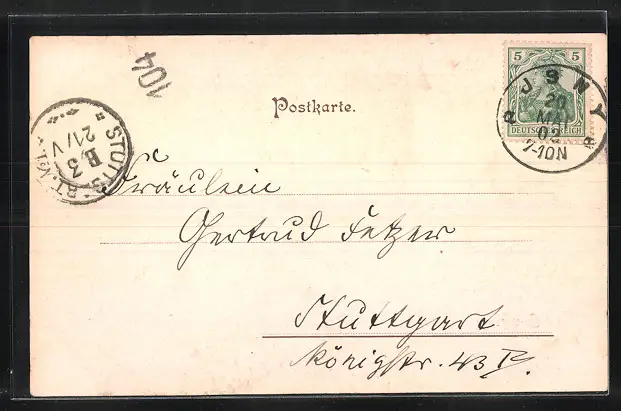 104
Postkarte.
5 5
DEUTSCHES REICH
20
MAI
02
7-10N
STUTTG
21/V
3
Fräulein
Gertrud Fetzer
Stuttgart
Königstr. 43 B.